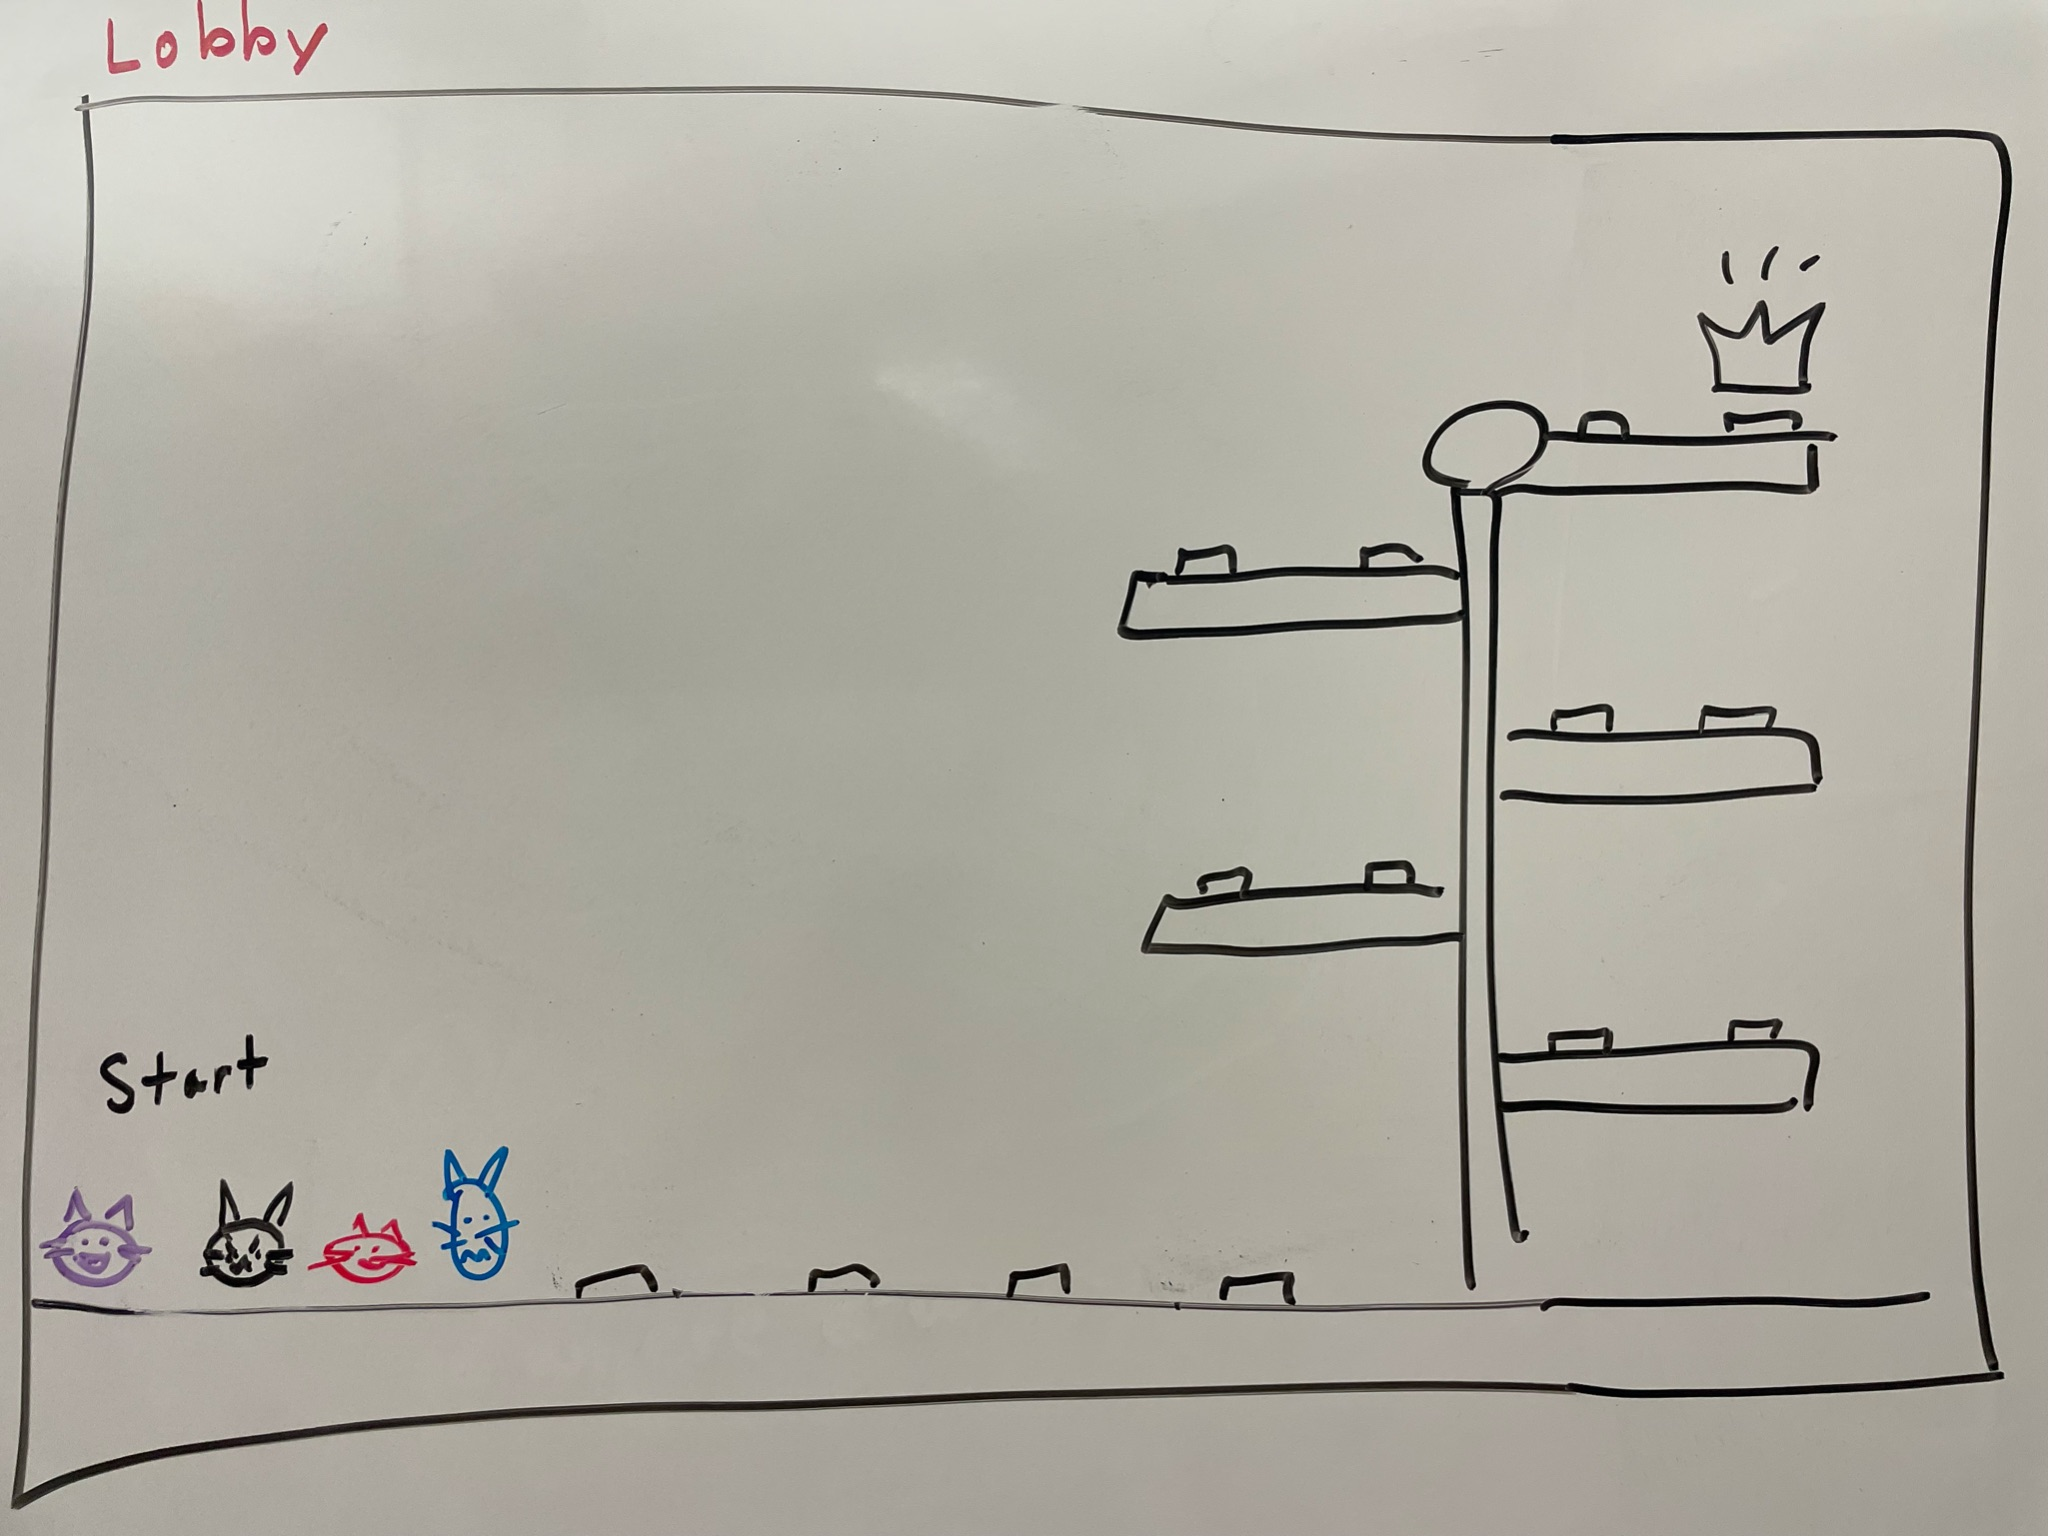 Lobby
Start